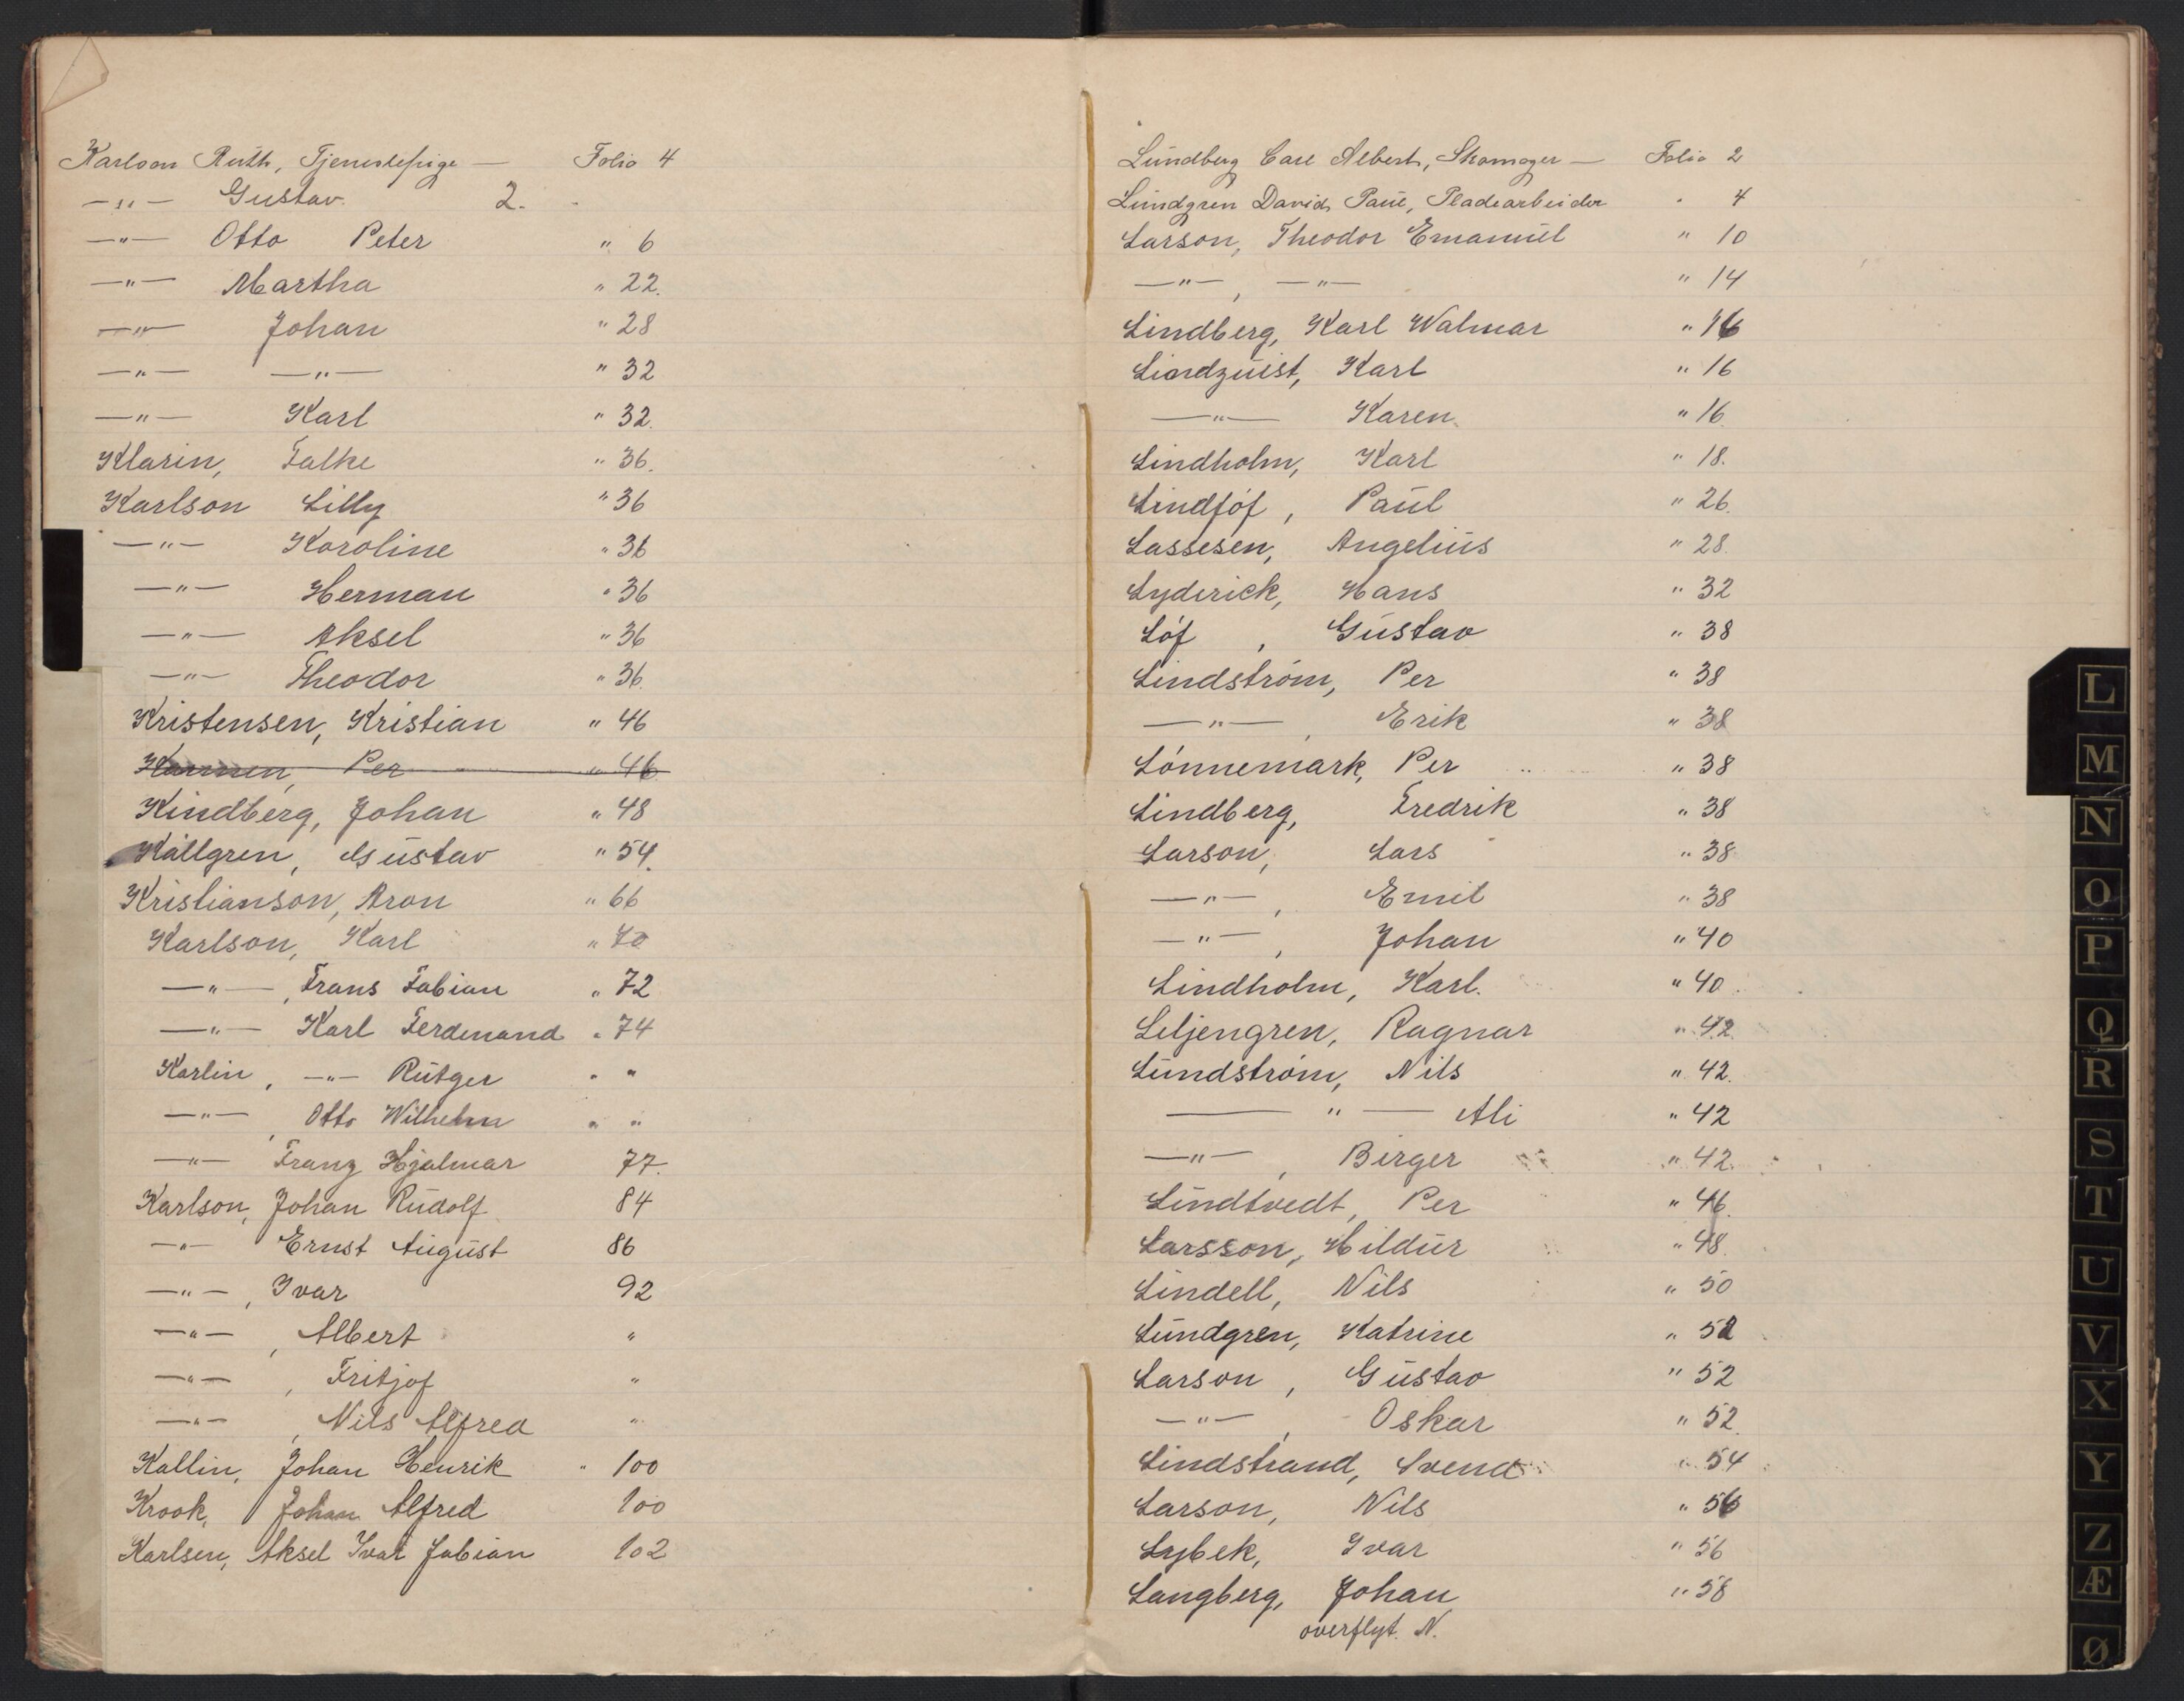 Karlson Ruth, Tjenestepige — Folio 4
—"— Gustav. 2.
—"— Otto Peter " 6
—"— Martha " 22.
—"— Johan " 28
—"— —"— " 32
—"— Karl " 32.
Klarin, Falke " 36.
Karlson Lilly " 36
—"— Karoline " 36
—"— Herman " 36
—"— Aksel " 36
—"— Theodor " 36.
Kristensen, Kristian " 46
Per " 46
Kindberg, Johan " 48
Källgren, Gustav " 54.
Kristianson, Aron " 66
Karlson, Karl " 70
—"—, Frans Fabian " 72
—"— Karl Ferdinand " 74
Karlin, —"— Rutger " "
—"—, Otto Wilhelm " "
—"— Franz Hjalmar 77.
Karlson, Johan Rudolf 84
—"— Ernst August 86
—"—, Ivar 92
—"—, Albert "
—"—, Fritjof "
—"—, Nils Alfred "
Kallin, Johan Henrik " 100
Krook, Johan Alfred 100
Karlsen, Aksel Ivar Fabian 102
Lundberg Carl Albert, Skomager — Folio 2
Lundgren David Paul, Pladearbeider " 4
Larson, Theodor Emanuel " 10
—"—, —"— " 14
Lindberg, Karl Walmar " 16
Lindquist, Karl " 16
—"— Karen " 16.
Lindholm, Karl " 18.
Lindföf, Paul " 26.
Lassesen, Angelius " 28.
Lyderick, Hans " 32
Löf, Gustav " 38
Lindström, Per " 38
—"—, Erik " 38
Lönnemark, Per " 38
Lindberg, Fredrik " 38
Larson, Lars " 38
—"—, Emil " 38
—"—, Johan " 40
Lindholm, Karl. " 40
Liljengren, Ragnar " 42.
Lundström, Nils " 42.
—"— Ali " 42
—"—, Birger " 42.
Lundtvedt, Per " 46.
Larsson, Hildur " 48.
Lindell, Nils " 50
Lundgren, Katrine " 52
Larson, Gustav " 52
—"—, Oskar " 52.
Lindstrand, Svend " 54
Larson, Nils " 56
Lybek, Ivar " 56
Langberg, Johan " 58
overflyt. N.
L
M
N
O
P
Q
R
S
T
U
V
X
Y
Z
Æ
Ø